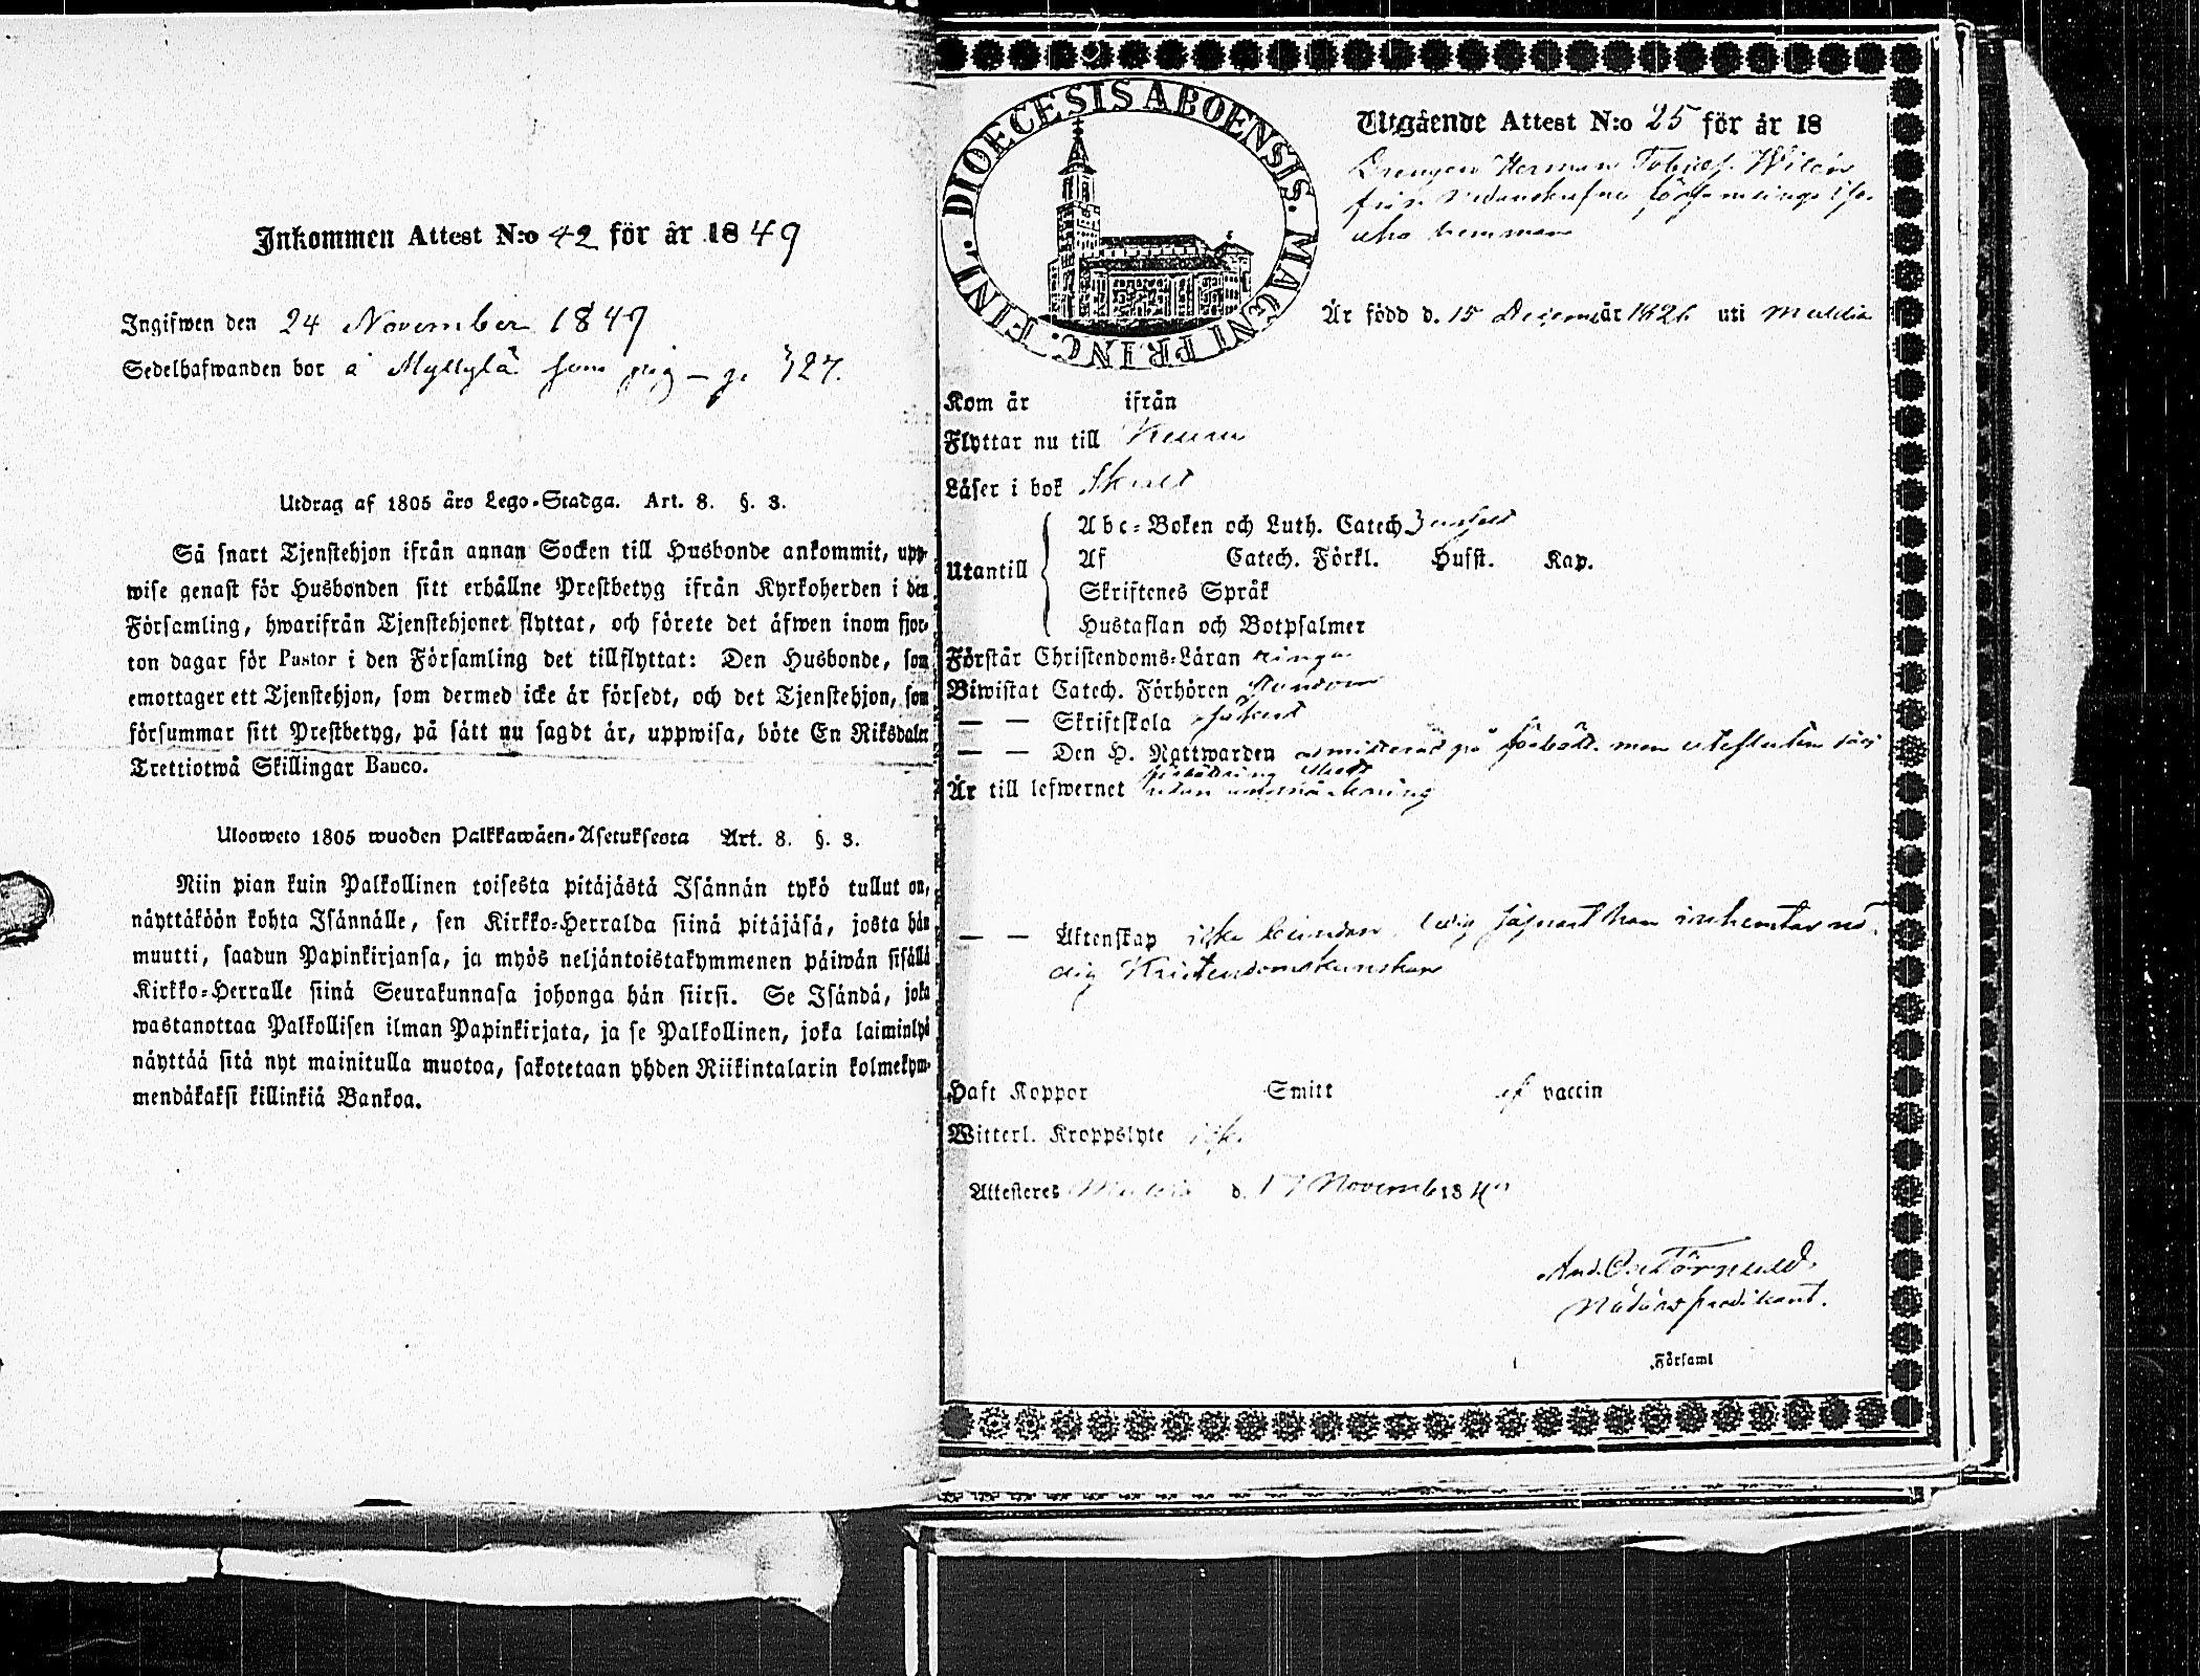 Inkommen Attest N:o 42 för år 1849
Ingifwen den 24 November 1849
Sedelhafwanden bor å Myllylä som pig
Utdrag af 1805 års Lego-Stadga. Art. 8. §. 3.
Så snart Tjenstehjon ifrån annan Socken till Husbonde ankommit, upp-
wise genast för Husbonden sitt erhållne Prestbetyg ifrån Kyrkoherden i den
Församling, hwarifrån Tjenstehjonet flyttat, och förete det äfwen inom fjor-
ton dagar för Pastor i den Församling det tillflyttat: Den Husbonde, som
emottager ett Tjenstehjon, som dermed icke är försedt, och det Tjenstehjon, som
försummar sitt Prestbetyg, på sätt nu sagdt är, uppwisa, böte En Riksdaler
Trettiotwå Skillingar Banco.
Ulosweto 1805 wuoden Palkkawäen-Asetuksesta Art. 8. §. 3.
Niin pian kuin Palkollinen toisesta pitäjästä Isännän tykö tullut on,
näyttäköön kohta Isännälle, sen Kirkko-Herralda siinä pitäjäsä, josta hän
muutti, saadun Papinkirjansa, ja myös neljäntoistakymmenen päiwän sisällä
Kirkko-Herralle siinä Seurakunnasa johonga hän siirsi. Se Isändä, joka
wastanottaa Palkollisen ilman Papinkirjata, ja se Palkollinen, joka laiminlyö
näyttää sitä nyt mainitulla muotoa, sakotetaan yhden Riikintalarin kolmekym-
mendäkaksi killinkiä Bankoa.
DIOECESIS ABOENSIS. MAGNI PRINC. FINL.
Utgående Attest N:o 25 för år 18
Drengen Herman Tobiasf. Wilén
från nedanskrefne församlings
hemman
Är född d. 15 Decem år 1826 uti Multia
Kom år ifrån
Flyttar nu till Keuru
Läser i bok Skralt
Utantill
Abc-Boken och Luth. Catech.
Af Catech. Förkl. Hufst. Kap.
Skriftenes Språk
Hustaflan och Botpsalmer
Förstår Christendoms-Läran ringa
Biwistat Catech. Förhören stundom
— — Skriftskola
— — Den H. Nattwarden admitterad på förbätt. men utesluten
förbättring skedt
Är till lefwernet utan anmärkning
— — Äktenskap icke bunden, ledig såsnart han inhemtar nö-
dig Kristendomskunskap
Haft Koppor Smitt af vaccin
Witterl. Kroppslyte icke
Attesteres Multia d. 17 Novemb 1849
And. Törnudd.
Nådårs predikant.
Församl